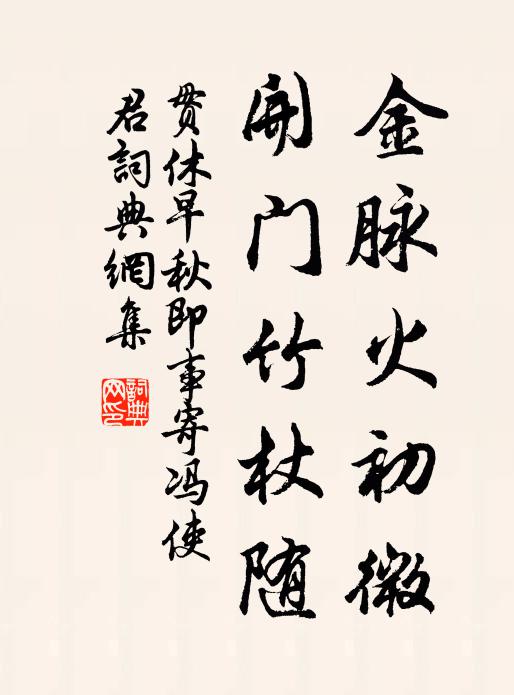 金脉火初微
開门竹杖随
贯休早秋即事寄冯使
君詞典網集
詞典网印